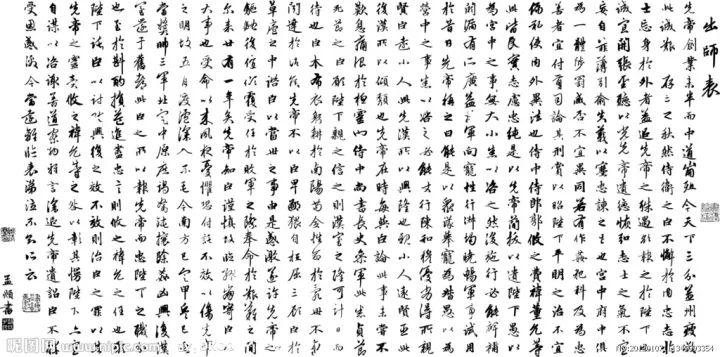 出師表
先帝創業未半而中道崩殂今天下三分益州疲敝
此誠危急存亡之秋也然侍衛之臣不懈於內忠志之
士忘身於外者蓋追先帝之殊遇欲報之於陛下也
誠宜開張聖聽以光先帝遺德恢志士之氣不宜
妄自菲薄引喻失義以塞忠諫之路也宮中府中俱
為一體陟罰臧否不宜異同若有作姦犯科及為忠
善者宜付有司論其刑賞以昭陛下平明之治不宜
偏私使內外異法也侍中侍郎郭攸之費禕董允等
此皆良實志慮忠純是以先帝簡拔以遺陛下愚以
為宮中之事無大小悉以咨之然後施行必能裨補
闕漏有所廣益將軍向寵性行淑均曉暢軍事試用
於昔日先帝稱之曰能是以眾議舉寵為督愚以為
營中之事悉以咨之必能使行陣和穆優劣得所親
賢臣遠小人此先漢所以興隆也親小人遠賢臣此
後漢所以傾頹也先帝在時每與臣論此事未嘗不
歎息痛恨於桓靈也侍中尚書長史參軍此悉貞亮
死節之臣也願陛下親之信之則漢室之隆可計日而
待也臣本布衣躬耕於南陽苟全性命於亂世不求
聞達於諸侯先帝不以臣卑鄙猥自枉屈三顧臣於
草廬之中諮臣以當世之事由是感激遂許先帝以
馳驅後值傾覆受任於敗軍之際奉命於危難之間
爾來廿有一年矣先帝知臣謹慎故臨崩寄臣以
大事也受命以來夙夜憂懼恐付託不效以傷先帝
之明故五月渡瀘深入不毛今南方已定甲兵已足
當獎帥三軍北定中原庶竭駑鈍攘除姦凶興復漢
室還于舊都此臣之所以報先帝而忠陛下之職分
也至於斟酌損益進盡忠言則攸之禕允之任也願
陛下託臣以討賊興復之效不效則治臣之罪以告
先帝之靈責攸之禕允等之咎以彰其慢陛下亦宜
自謀以諮諏善道察納雅言深追先帝遺詔臣不勝
受恩感激今當遠離臨表涕泣不知所云
孟頫書